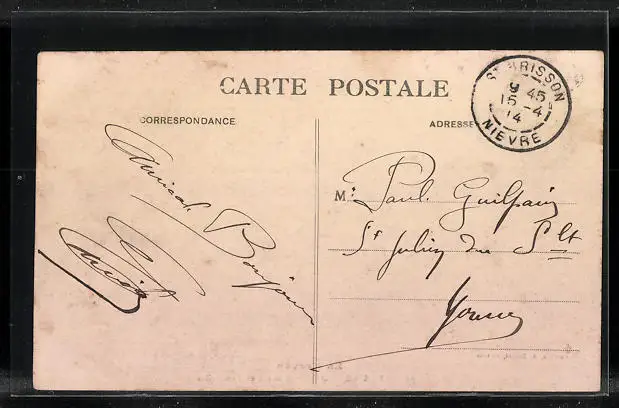 CARTE POSTALE
CORRESPONDANCE
ADRESSE
ST BRISSON
9 45
15 -4
14
NIEVRE
Amical Bonjour
M. Paul Guilpain
St Julien du Slt
Yonne